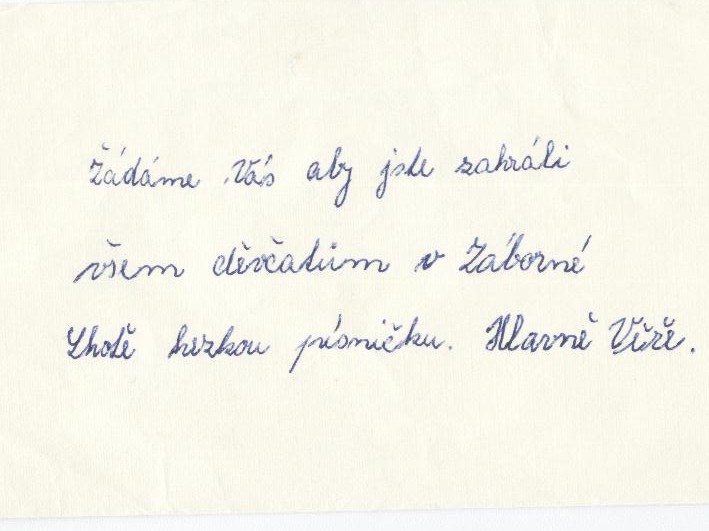 Žádáme Vás aby jste zahráli
všem děvčatům v Záborné
Lhotě hezkou písničku. Hlavně Věře.